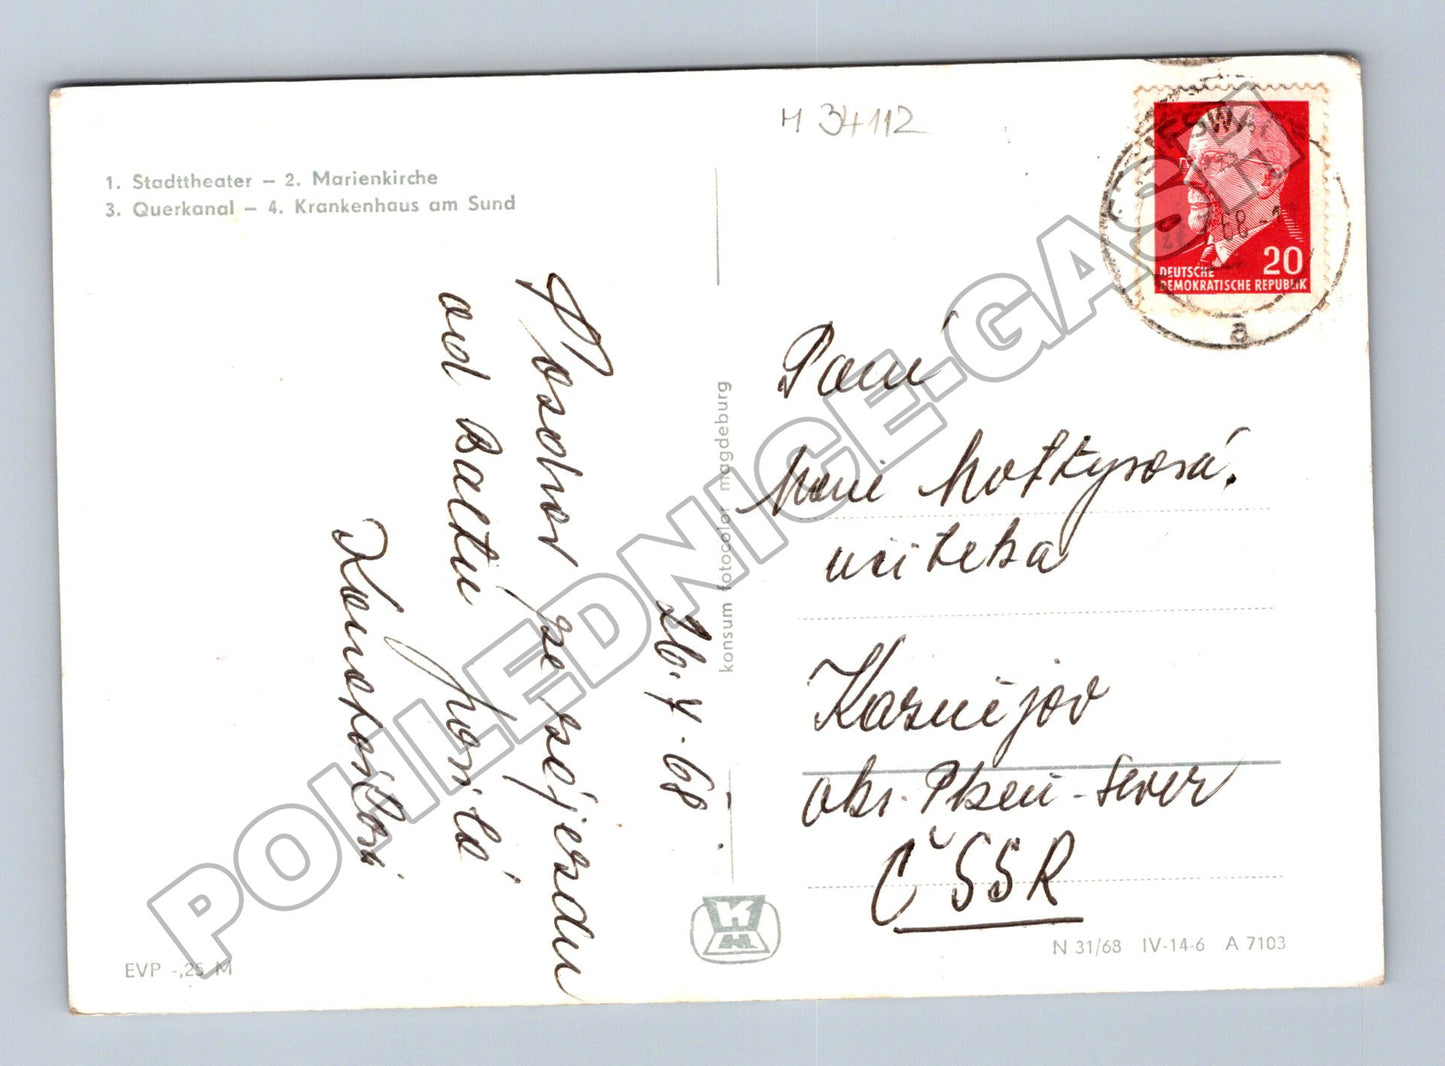 1. Stadttheater – 2. Marienkirche
3. Querkanal – 4. Krankenhaus am Sund
M 34112
DEUTSCHE
DEMOKRATISCHE REPUBLIK
20
68
a
Pozdrav ze zájezdu
od Baltu posílá
26. 7. 68
konsum fotocolor magdeburg
Paní
učitelka
Kaznějov
okr. Plzeň-Sever
ČSSR
KH
EVP -,25 M
N 31/68 IV-14-6 A 7103
POHLEDNICE-GASH